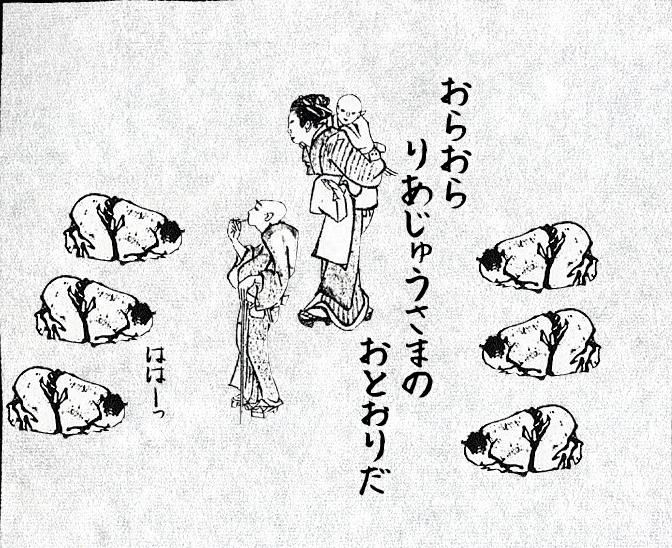 おらおら
りあじゅうさまの
おとおりだ
ははーっ